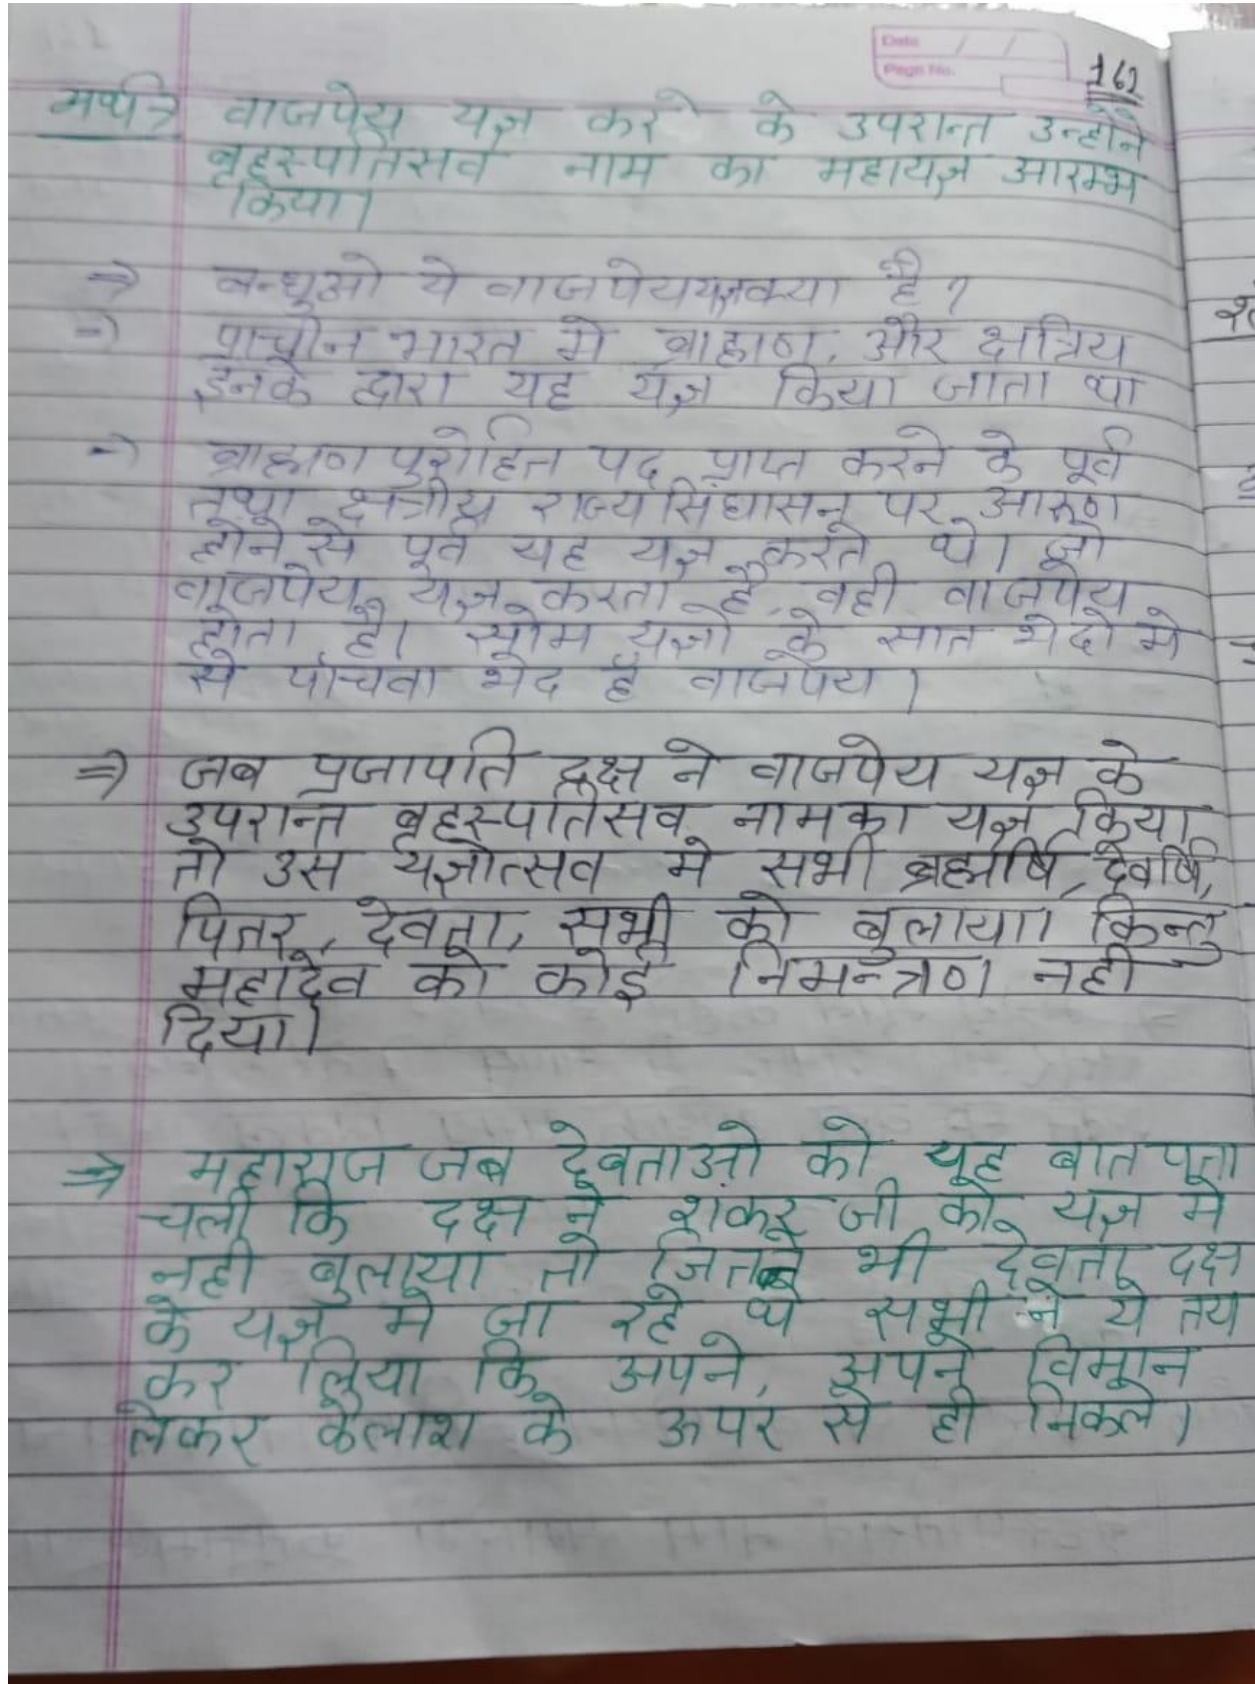 Date / /
Page No.
162
वाजपेय यज्ञ करे के उपरान्त उन्होंने
बृहस्पतिसव नाम का महायज्ञ आरम्भ
किया।
⇒ बन्धुओ ये वाजपेययज्ञक्या है ?
⇒ प्राचीन भारत मे ब्राह्मण, और क्षत्रिय
इनके द्वारा यह यज्ञ किया जाता था
⇒ ब्राह्मण पुरोहित पद प्राप्त करने के पूर्व
तथा क्षत्रीय राज्य सिंघासन पर आरूण
होने से पूर्व यह यज्ञ करते थे। जो
वाजपेय यज्ञ करता है, वही वाजपेय
होता है। सोम यज्ञो के सात भेदो मे
से पाँचवा भेद है वाजपेय।
⇒ जब प्रजापति दक्ष ने वाजपेय यज्ञ के
उपरान्त बृहस्पतिसव नामका यज्ञ किया
तो उस यज्ञोत्सव मे सभी ब्रह्मर्षि, देवर्षि,
पितर, देवता, सभी को बुलाया। किन्तु
महादेव को कोई निमन्त्रण नही
दिया।
⇒ महाराज जब देवताओ को यह बात पता
चली कि दक्ष ने शंकर जी को यज्ञ मे
नही बुलाया तो जितने भी देवता दक्ष
के यज्ञ मे जा रहे थे सभी ने ये तय
कर लिया कि अपने, अपने विमान
लेकर कैलाश के ऊपर से ही निकले।